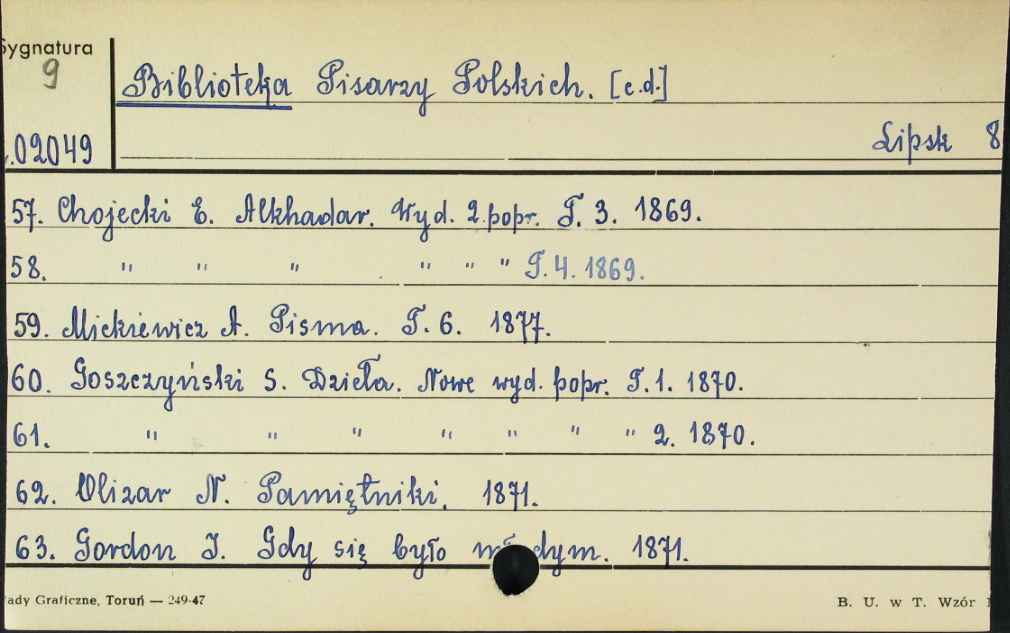 Sygnatura
9
Biblioteka Pisarzy Polskich. [c.d.]
.02049
Lipsk 8
57. Chojecki E. Alkhadar. Wyd. 2 popr. T. 3. 1869.
58. " " " " " " T. 4. 1869.
59. Mickiewicz A. Pisma. T. 6. 1877.
60. Goszczyński S. Dzieła. Nowe wyd. popr. T. 1. 1870.
61. " " " " " " " 2. 1870.
62. Olizar N. Pamiętniki. 1871.
63. Gordon J. Gdy się było młodym. 1871.
łady Graficzne, Toruń — 249-47
B. U. w T. Wzór